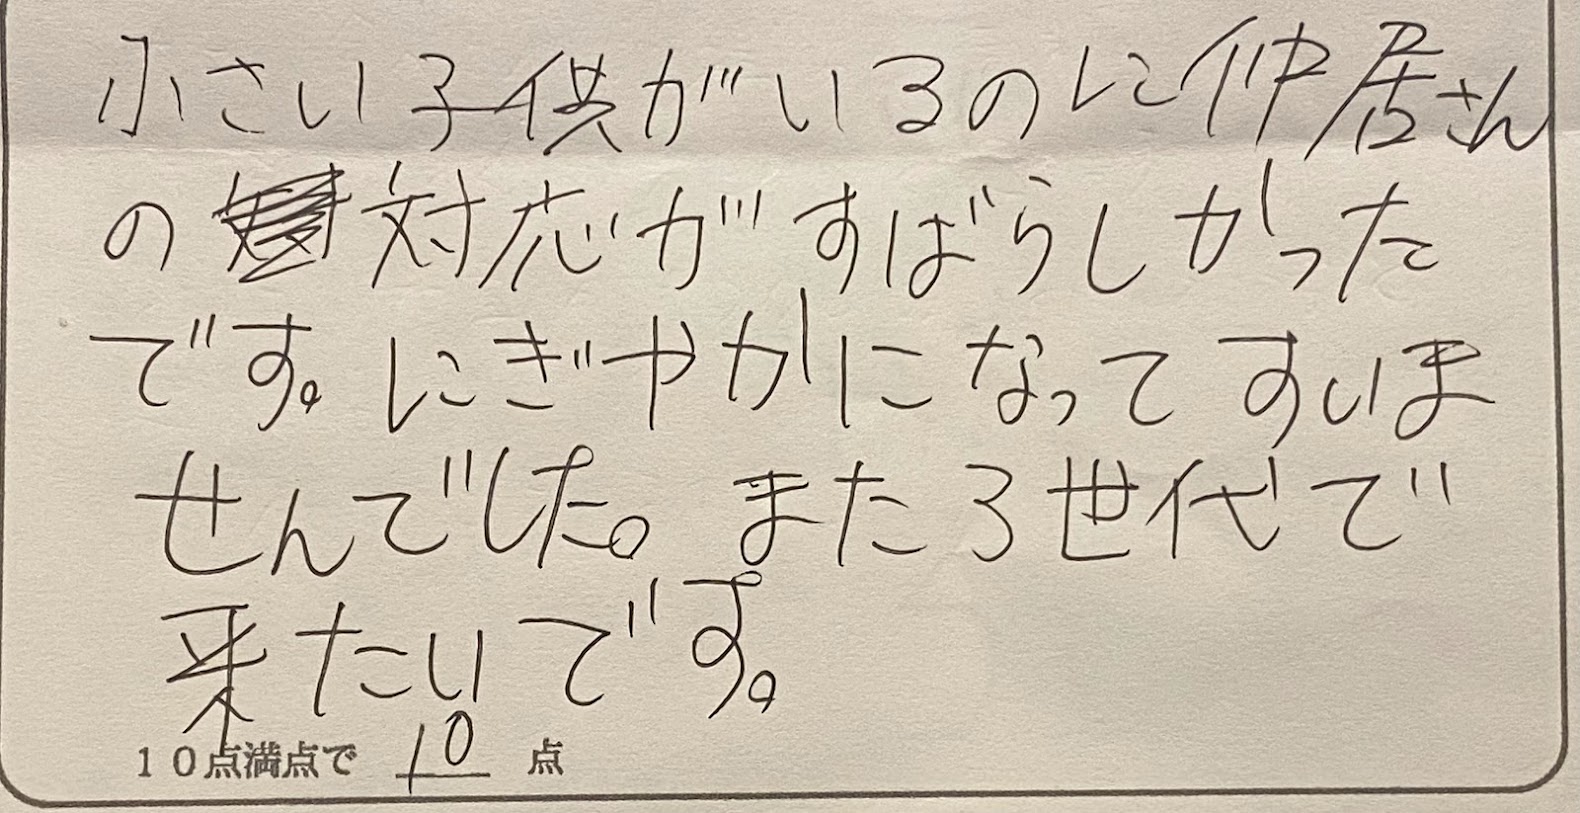 小さい子供がいるのに仲居さん
の対応がすばらしかった
です。にぎやかになってすいま
せんでした。また3世代で
来たいです。
10点満点で 10 点